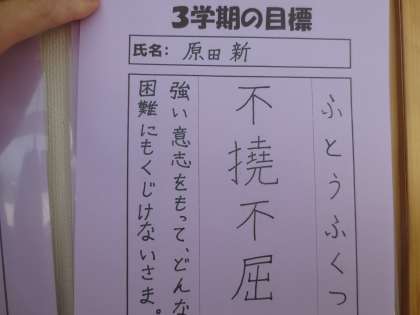 3学期の目標
氏名: 原田 新
ふとうふくつ
不撓不屈
強い意志をもって、どんな
困難にもくじけないさま。